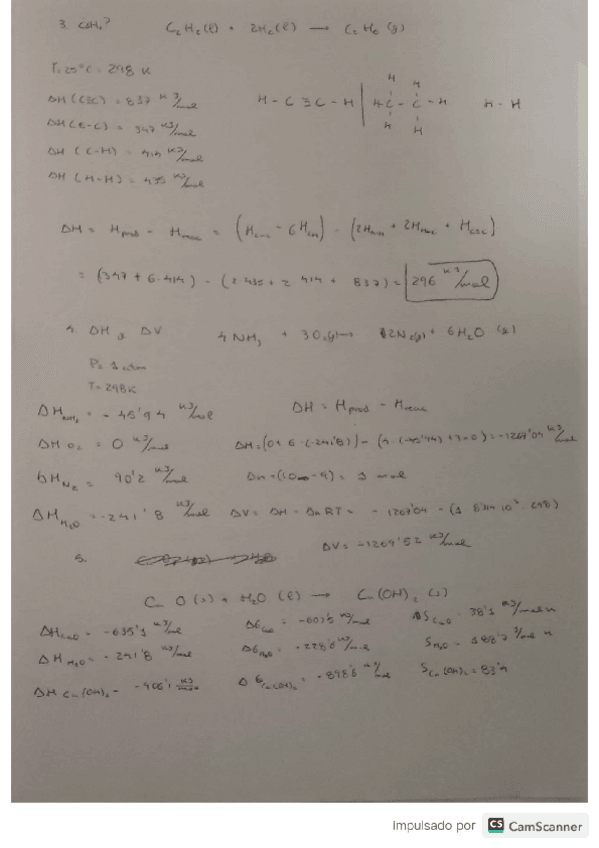 3. C₂H₆? C₂H₂(l) + 2H₂(l) → C₂H₆(g)
T = 25°C = 298 K
ΔH (C≡C) = 837 KJ/mol
H - C ≡ C - H H - H
ΔH (C-C) = 347 KJ/mol
ΔH (C-H) = 414 KJ/mol
ΔH (H-H) = 435 KJ/mol
ΔH = Hprod - Hreac = (HC-C - 6HC-H) - (2HH-H + 2HH-C + HC≡C)
= (347 + 6·414) - (2·435 + 2·414 + 837) = 296 KJ/mol
4. ΔH y ΔV 4NH₃ + 3O₂(g) → 2N₂(g) + 6H₂O (g)
P = 1 atm
T = 298K
ΔHNH₃ = -45'94 KJ/mol ΔH = Hprod - Hreac
ΔHO₂ = 0 KJ/mol ΔH = (0 + 6·(-241'8)) - (4·(-45'94) + 3·0) = -1267'04 KJ/mol
ΔHN₂ = 90'2 KJ/mol Δn = 1 mol
ΔHH₂O = -241'8 KJ/mol ΔV = ΔH - ΔnRT = -1267'04 - (1· 8'314·10³·298)
ΔV = -1269'52 KJ/mol
5.
Ca O (s) + H₂O (l) → Ca(OH)₂ (s)
ΔHCaO = -635'1 KJ/mol ΔGCaO = -603'5 KJ/mol ΔSCaO = 38'1
ΔHH₂O = -241'8 KJ/mol ΔGH₂O = -228'6 KJ/mol SH₂O = 188'7 J/mol K
ΔH Ca(OH)₂ = ΔGCa(OH)₂ = -898'6 KJ/mol SCa(OH)₂ = 83'4
Impulsado por CS CamScanner